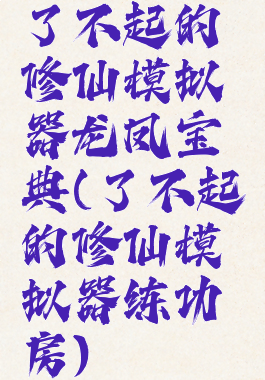 了不起的
修仙模拟
器龙凤宝
典(了不起
的修仙模
拟器练功
房)